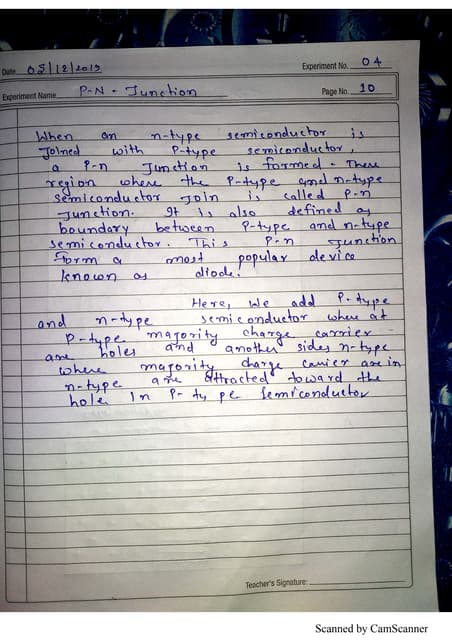 Date 05/12/2019 Experiment No. 04
Experiment Name P-N - Junction Page No. 10
When an n-type semiconductor is
Joined with P-type semiconductor,
a P-n Junction is formed. There
region where the P-type and n-type
semiconductor Join is called P-n
Junction. It is also defined as
boundary between P-type and n-type
semiconductor. This P-n Junction
form a most popular device
known as diode.
Here, We add P-type
and n-type semiconductor where at
P-type majority charge carrier
are holes and another sides n-type
where majority charge carrier are in
n-type are attracted toward the
hole In P-type semiconductor
Teacher's Signature:
Scanned by CamScanner